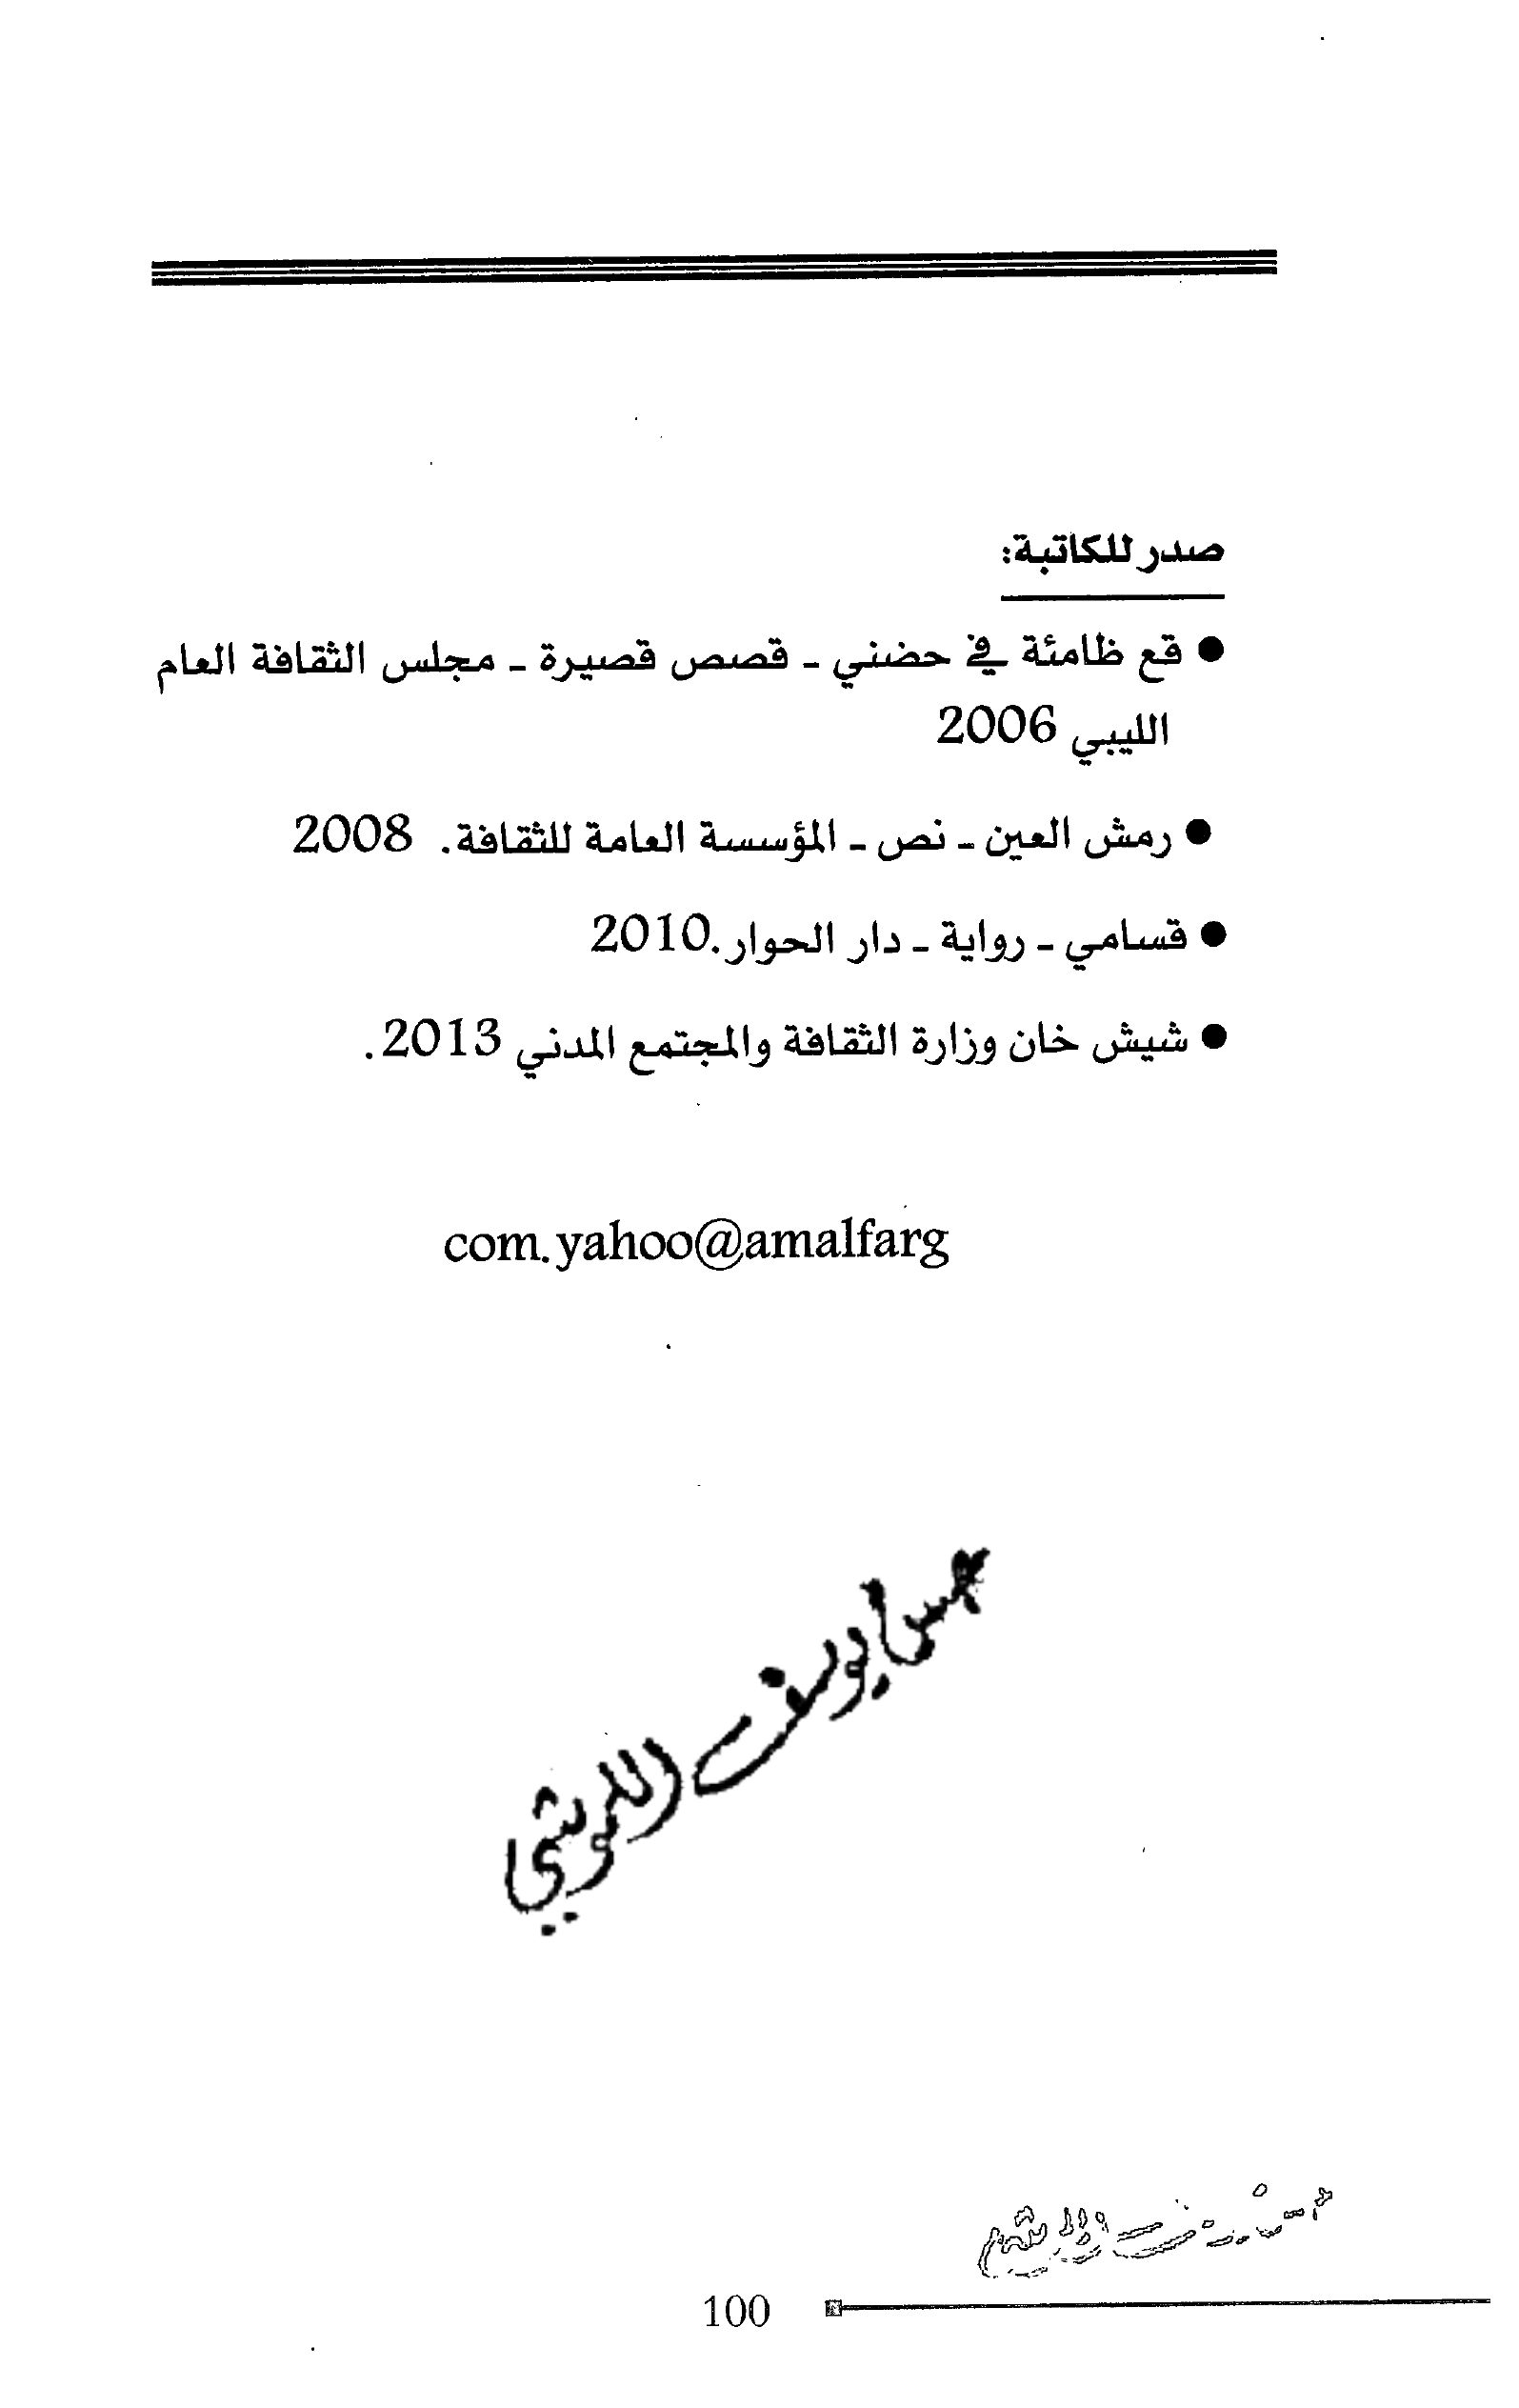 صدر للكاتبة:
● قع ظامئة في حضني - قصص قصيرة - مجلس الثقافة العام
الليبي 2006
● رمش العين - نص - المؤسسة العامة للثقافة. 2008
● قسامي - رواية - دار الحوار.2010
● شيش خان وزارة الثقافة والمجتمع المدني 2013.
com.yahoo@amalfarg
يوسف
100